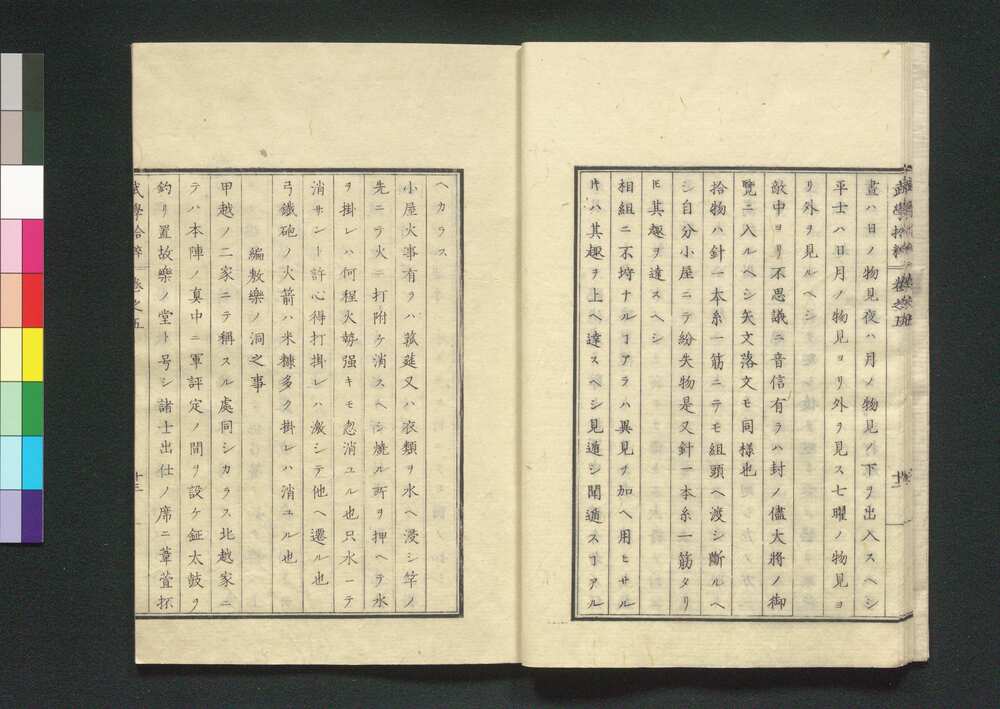 晝ハ日ノ物見夜ハ月ノ物見ノ下ヲ出入スヘシ
平士ハ日月ノ物見ヨリ外ヲ見ス七曜ノ物見ヨ
リ外ヲ見ルヘシ
敵中ヨリ不思議ニ音信有ラハ封ノ儘大將ノ御
覽ニ入ルヘシ矢文落文モ同様也
拾物ハ針一本糸一筋ニテモ組頭ヘ渡シ斷ルヘ
シ自分小屋ニテ紛失物是又針一本糸一筋タリ
𪜈其趣ヲ達スヘシ
相組ニ不埒ナルヿアラハ異見ヲ加ヘ用ヒサル
𪜈ハ其趣ヲ上ヘ達スヘシ見遁シ聞遁スヿアル
ヘカラス
小屋火事有ラハ菰莚又ハ衣類ヲ水ヘ浸シ竿ノ
先ニテ火ニ打附ケ消スヘシ燒ル所ヲ押ヘテ水
ヲ掛レハ何程火勢强キモ忽消ユル也只水一テ
消サント許心得打掛レハ激シテ他ヘ遷ル也
弓鐵砲ノ火箭ハ米糠多ク掛レハ消ユル也
編敷樂ノ洞之事
甲越ノ二家ニテ稱スル處同シカラス北越家ニ
テハ本陣ノ真中ニ軍評定ノ間ヲ設ケ鉦太鼓ヲ
釣リ置故樂ノ堂ト号シ諸士出仕ノ席ニ葦萱抔
武學拾粹 卷之五 十三